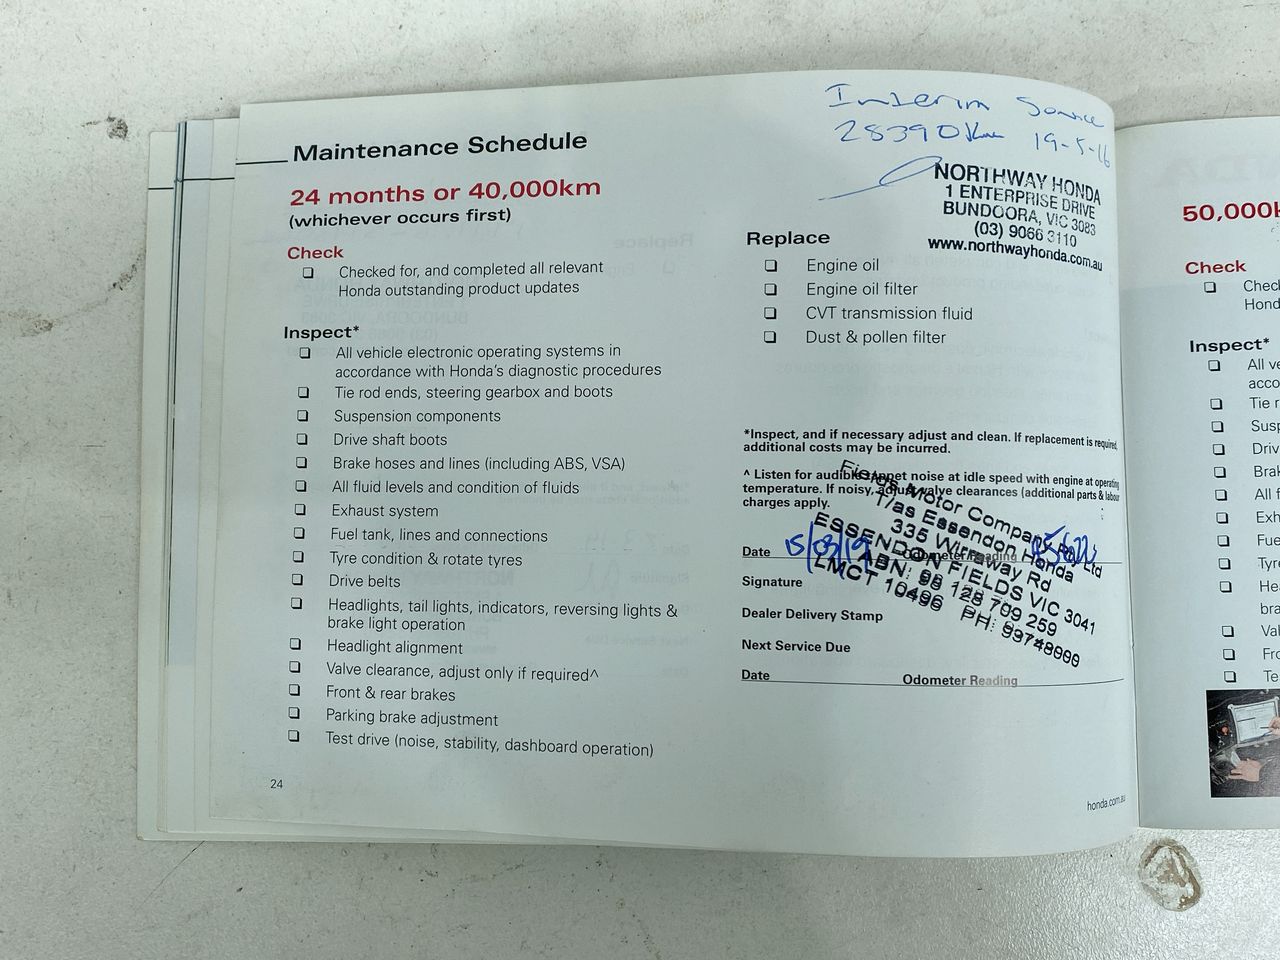 Interim Service
28390km 19-5-16
NORTHWAY HONDA
1 ENTERPRISE DRIVE
BUNDOORA, VIC 3083
(03) 9066 3110
www.northwayhonda.com.au
Maintenance Schedule
24 months or 40,000km
(whichever occurs first)
Check
❏ Checked for, and completed all relevant
Honda outstanding product updates
Inspect*
❏ All vehicle electronic operating systems in
accordance with Honda's diagnostic procedures
❏ Tie rod ends, steering gearbox and boots
❏ Suspension components
❏ Drive shaft boots
❏ Brake hoses and lines (including ABS, VSA)
❏ All fluid levels and condition of fluids
❏ Exhaust system
❏ Fuel tank, lines and connections
❏ Tyre condition & rotate tyres
❏ Drive belts
❏ Headlights, tail lights, indicators, reversing lights &
brake light operation
❏ Headlight alignment
❏ Valve clearance, adjust only if required^
❏ Front & rear brakes
❏ Parking brake adjustment
❏ Test drive (noise, stability, dashboard operation)
24
Replace
❏ Engine oil
❏ Engine oil filter
❏ CVT transmission fluid
❏ Dust & pollen filter
*Inspect, and if necessary adjust and clean. If replacement is required,
additional costs may be incurred.
^ Listen for audible tappet noise at idle speed with engine at operating
temperature. If noisy, adjust valve clearances (additional parts & labour
charges apply.
Date 15/03/19 Odometer Reading
Signature
Dealer Delivery Stamp
Next Service Due
Date Odometer Reading
Fields Motor Company Pty Ltd
T/as Essendon Honda
335 Wirraway Rd
ESSENDON FIELDS VIC 3041
ABN: 98 128 709 259
LMCT 10496 PH: 99748000
honda.com.au
50,000k
Check
❏ Check
Honda
Inspect*
❏ All ve
acco
❏ Tie r
❏ Susp
❏ Driv
❏ Brak
❏ All f
❏ Exh
❏ Fue
❏ Tyre
❏ He
bra
❏ Val
❏ Fro
❏ Te